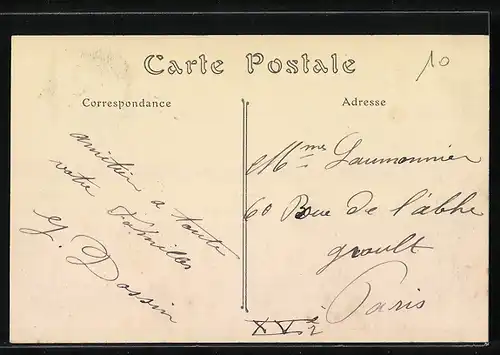 10
Carte Postale
Correspondance
amitiés a toute
votre famille
G. Dossin
Adresse
Mme Laumonnier
60 Rue de l'abbe
groult
Paris
XV